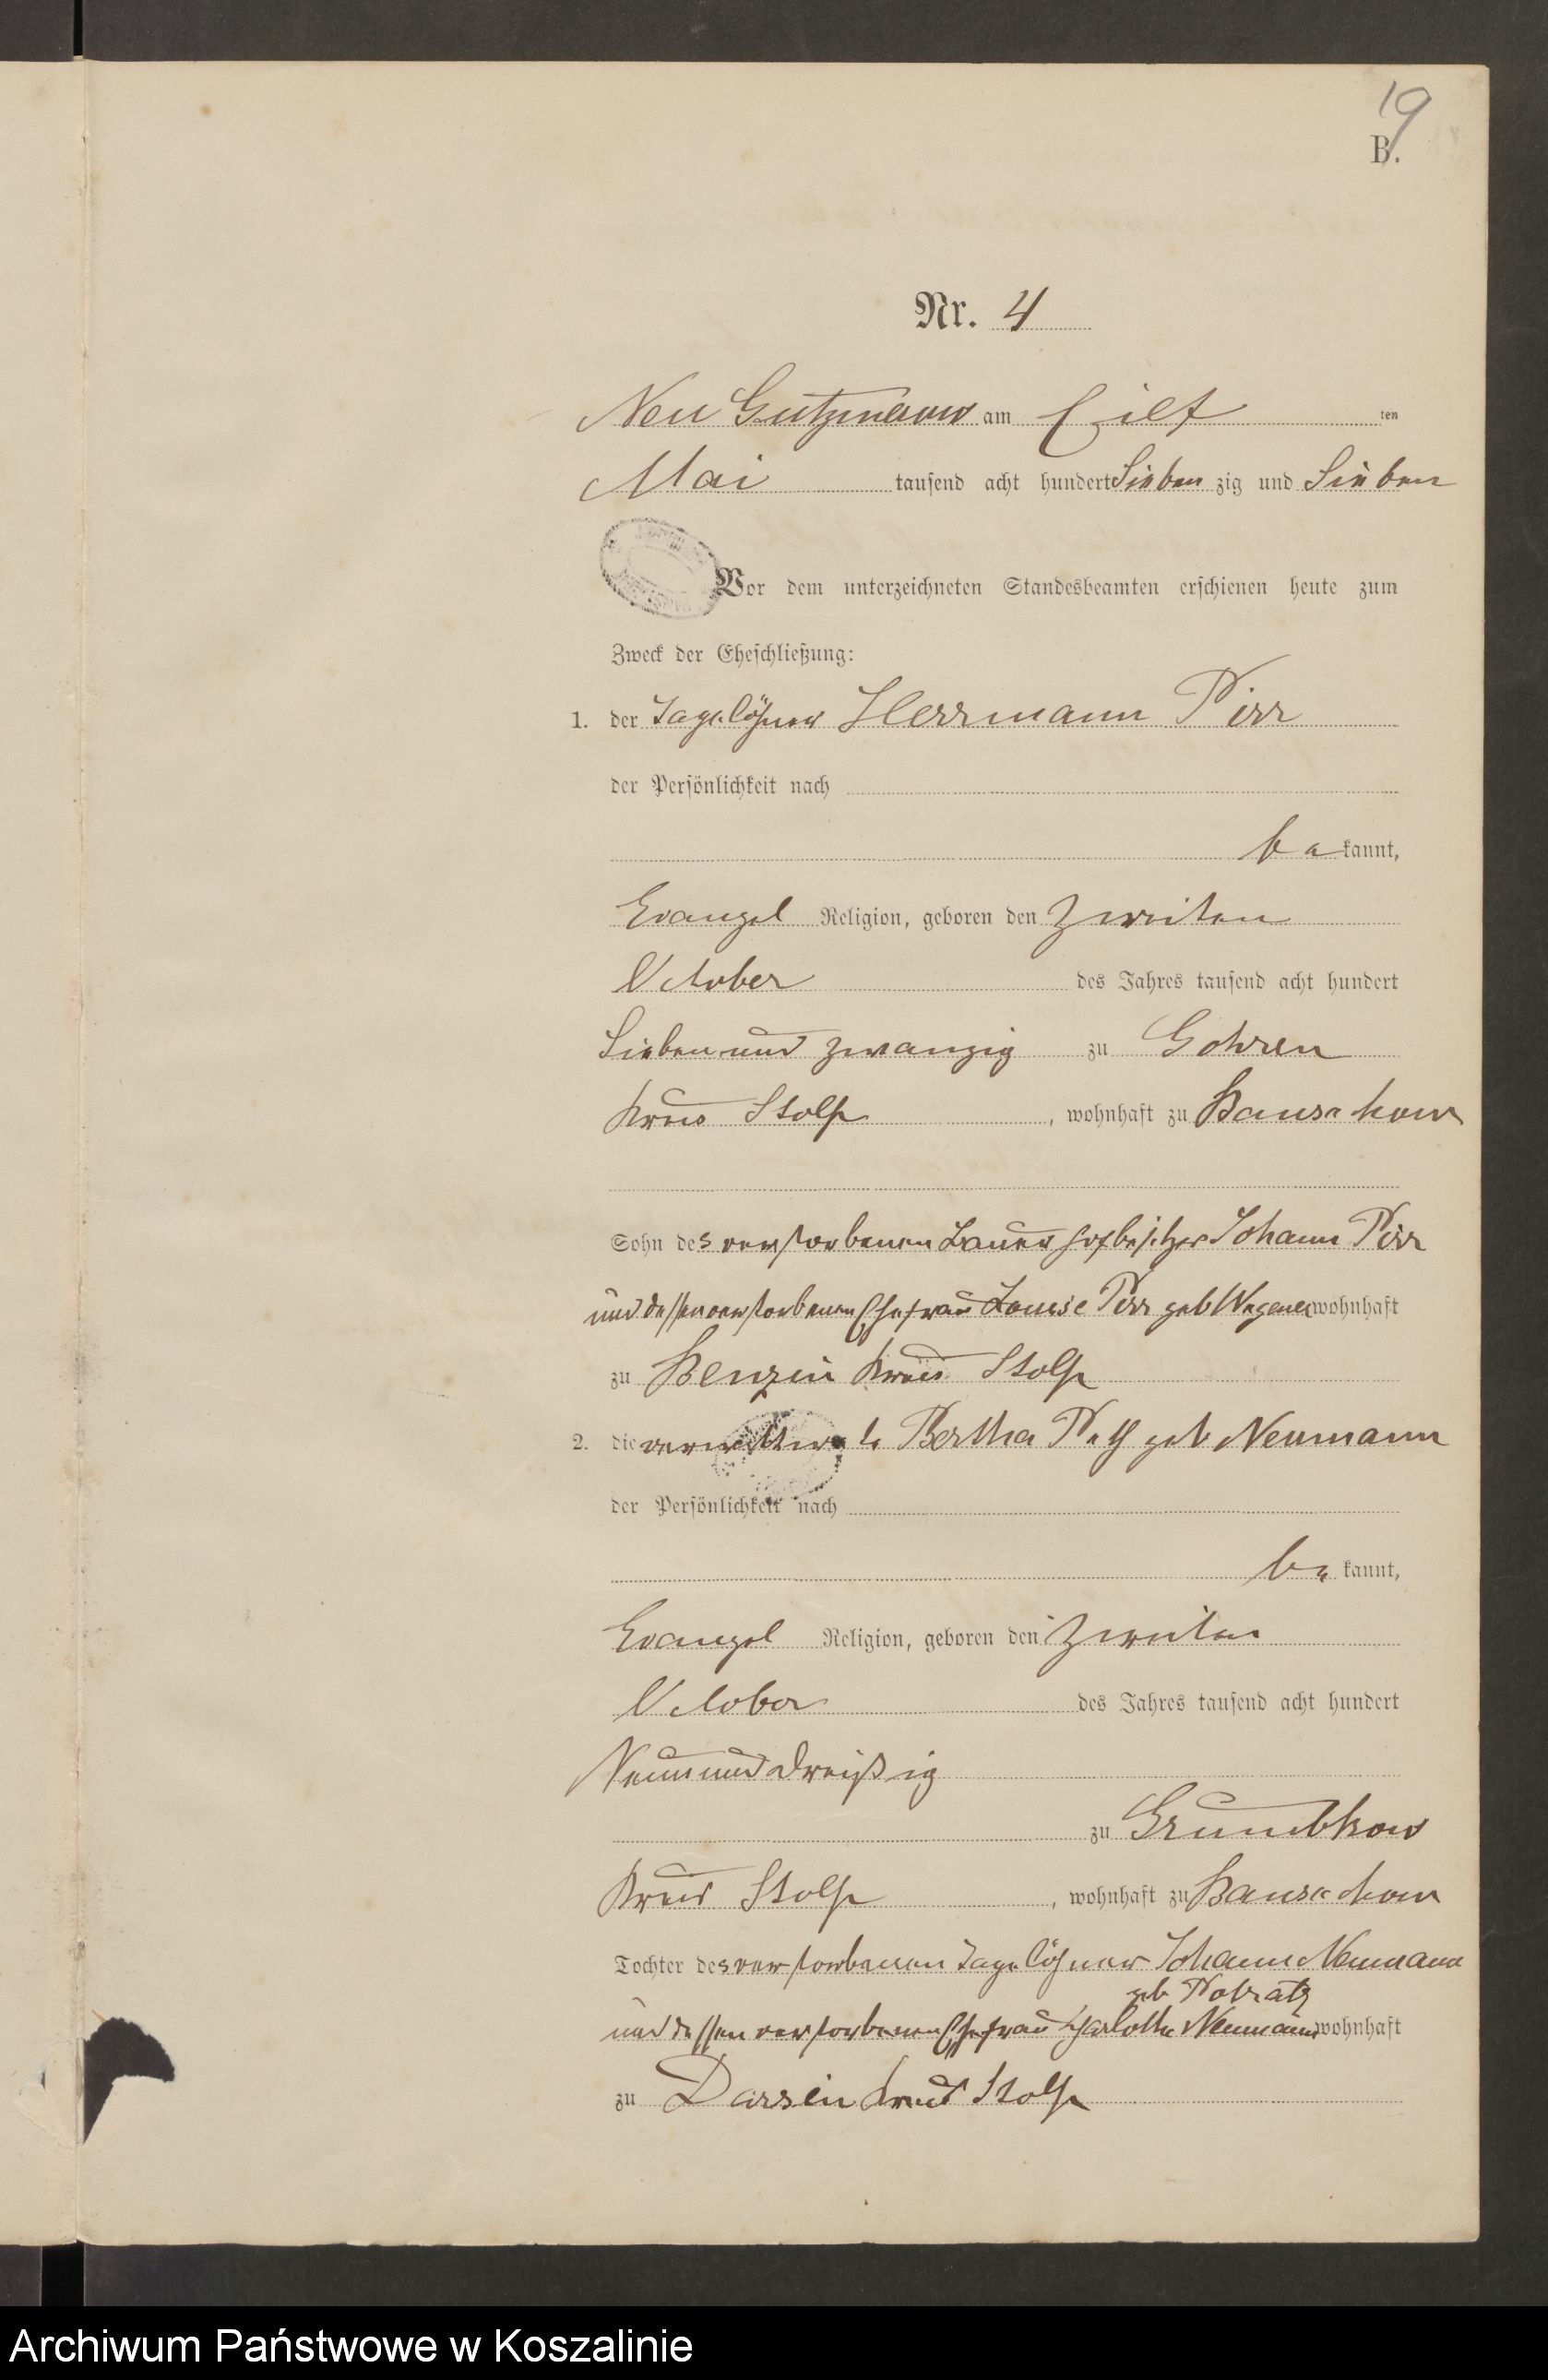 19
B.
Nr. 4
Neu Gutzmerow am Eilf ten
Mai tausend acht hundert Sieben zig und Sieben
Vor dem unterzeichneten Standesbeamten erschienen heute zum
Zweck der Eheschließung:
1. der Tagelöhner Herrmann Pirr
der Persönlichkeit nach
be kannt,
Evangel Religion, geboren den Zweiten
October des Jahres tausend acht hundert
Sieben und zwanzig zu Gohren
Kreis Stolp, wohnhaft zu
Sohn des verstorbenen Bauerhofbesitzer Johann Pirr
und dessen verstorbenen Ehefrau Louise Pirr geb Wegener wohnhaft
zu Benzin Kreis Stolp
2. die verwittwete Bertha geb Neumann
der Persönlichkeit nach
be kannt,
Evangel Religion, geboren den Zweiten
October des Jahres tausend acht hundert
Neun und dreißig
zu Grumbkow
Kreis Stolp, wohnhaft zu
Tochter des verstorbenen Tagelöhner Johann Neumann
geb Pobratz
und dessen verstorbenen Ehefrau Charlotte Neumann wohnhaft
zu Darsin Kreis Stolp
Archiwum Państwowe w Koszalinie